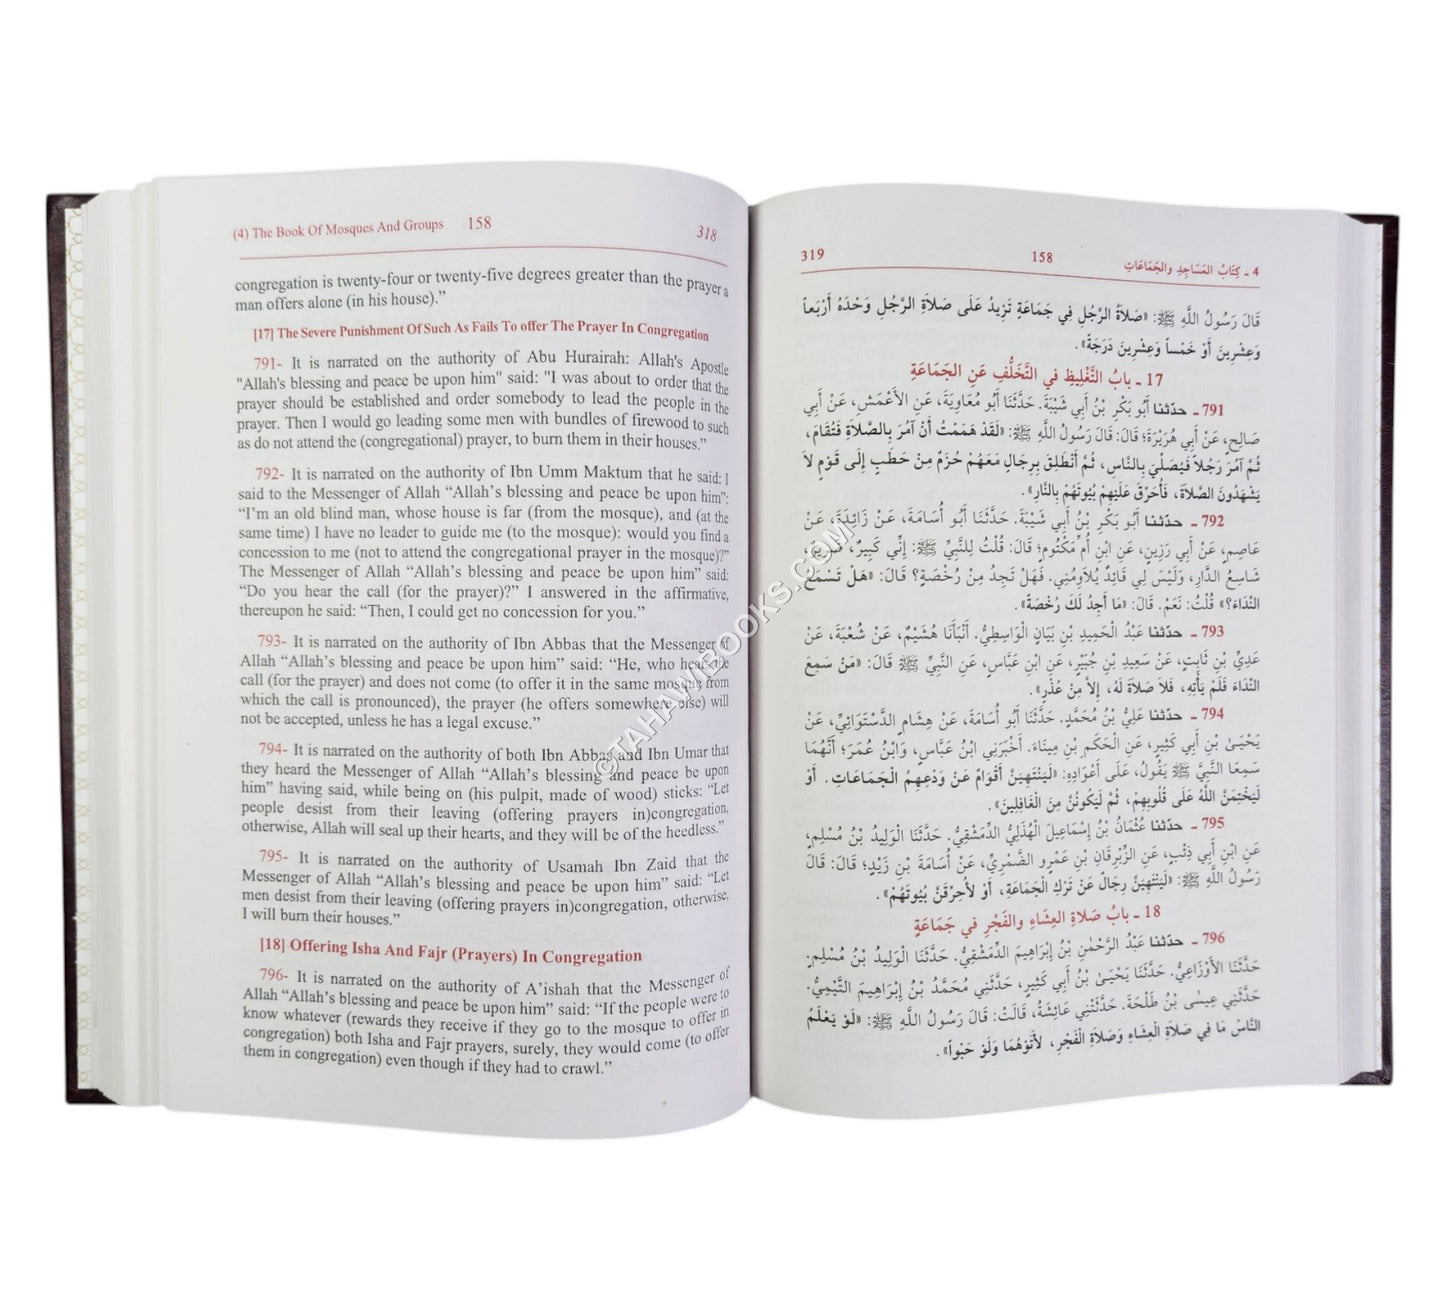 (4) The Book Of Mosques And Groups 158 318
congregation is twenty-four or twenty-five degrees greater than the prayer a
man offers alone (in his house).”
[17] The Severe Punishment Of Such As Fails To offer The Prayer In Congregation
791- It is narrated on the authority of Abu Hurairah: Allah's Apostle
"Allah's blessing and peace be upon him" said: "I was about to order that the
prayer should be established and order somebody to lead the people in the
prayer. Then I would go leading some men with bundles of firewood to such
as do not attend the (congregational) prayer, to burn them in their houses.”
792- It is narrated on the authority of Ibn Umm Maktum that he said: I
said to the Messenger of Allah “Allah’s blessing and peace be upon him”:
“I’m an old blind man, whose house is far (from the mosque), and (at the
same time) I have no leader to guide me (to the mosque): would you find a
concession to me (not to attend the congregational prayer in the mosque)?”
The Messenger of Allah “Allah’s blessing and peace be upon him” said:
“Do you hear the call (for the prayer)?” I answered in the affirmative,
thereupon he said: “Then, I could get no concession for you.”
793- It is narrated on the authority of Ibn Abbas that the Messenger of
Allah “Allah’s blessing and peace be upon him” said: “He, who hears the
call (for the prayer) and does not come (to offer it in the same mosque from
which the call is pronounced), the prayer (he offers somewhere else) will
not be accepted, unless he has a legal excuse.”
794- It is narrated on the authority of both Ibn Abbas and Ibn Umar that
they heard the Messenger of Allah “Allah’s blessing and peace be upon
him” having said, while being on (his pulpit, made of wood) sticks: “Let
people desist from their leaving (offering prayers in)congregation,
otherwise, Allah will seal up their hearts, and they will be of the heedless.”
795- It is narrated on the authority of Usamah Ibn Zaid that the
Messenger of Allah “Allah’s blessing and peace be upon him” said: “Let
men desist from their leaving (offering prayers in)congregation, otherwise,
I will burn their houses.”
[18] Offering Isha And Fajr (Prayers) In Congregation
796- It is narrated on the authority of A’ishah that the Messenger of
Allah “Allah’s blessing and peace be upon him” said: “If the people were to
know whatever (rewards they receive if they go to the mosque to offer in
congregation) both Isha and Fajr prayers, surely, they would come (to offer
them in congregation) even though if they had to crawl.”
4 ـ كِتَابُ المَسَاجِدِ والجَمَاعَاتِ 158 319
قَالَ رَسُولُ اللَّهِ ﷺ: «صَلاَةُ الرَّجُلِ فِي جَمَاعَةٍ تَزِيدُ عَلَى صَلاَةِ الرَّجُلِ وَحْدَهُ أَرْبَعاً
وَعِشْرِينَ أَوْ خَمْساً وَعِشْرِينَ دَرَجَةً».
17 ـ بابُ التَّغْلِيظِ في التَّخَلُّفِ عَنِ الجَمَاعَةِ
791 ـ حدّثنا أَبُو بَكْرِ بْنُ أَبِي شَيْبَةَ. حَدَّثَنَا أَبُو مُعَاوِيَةَ، عَنِ الأَعْمَشِ، عَنْ أَبِي
صَالِحٍ، عَنْ أَبِي هُرَيْرَةَ؛ قَالَ: قَالَ رَسُولُ اللَّهِ ﷺ: «لَقَدْ هَمَمْتُ أَنْ آمُرَ بِالصَّلاَةِ فَتُقَامَ،
ثُمَّ آمُرَ رَجُلاً فَيُصَلِّيَ بِالنَّاسِ، ثُمَّ أَنْطَلِقَ بِرِجَالٍ مَعَهُمْ حُزَمٌ مِنْ حَطَبٍ إِلَى قَوْمٍ لاَ
يَشْهَدُونَ الصَّلاَةَ، فَأُحَرِّقَ عَلَيْهِمْ بُيُوتَهُمْ بِالنَّارِ».
792 ـ حدّثنا أَبُو بَكْرِ بْنُ أَبِي شَيْبَةَ. حَدَّثَنَا أَبُو أُسَامَةَ، عَنْ زَائِدَةَ، عَنْ
عَاصِمٍ، عَنْ أَبِي رَزِينٍ، عَنِ ابْنِ أُمِّ مَكْتُومٍ؛ قَالَ: قُلْتُ لِلنَّبِيِّ ﷺ: إِنِّي كَبِيرٌ، ضَرِيرٌ،
شَاسِعُ الدَّارِ، وَلَيْسَ لِي قَائِدٌ يُلاَوِمُنِي. فَهَلْ تَجِدُ مِنْ رُخْصَةٍ؟ قَالَ: «هَلْ تَسْمَعُ
النِّدَاءَ؟» قُلْتُ: نَعَمْ. قَالَ: «مَا أَجِدُ لَكَ رُخْصَةً».
793 ـ حدّثنا عَبْدُ الْحَمِيدِ بْنِ بَيَانٍ الْوَاسِطِيُّ. أَنْبَأَنَا هُشَيْمٌ، عَنْ شُعْبَةَ، عَنْ
عَدِيِّ بْنِ ثَابِتٍ، عَنْ سَعِيدِ بْنِ جُبَيْرٍ، عَنِ ابْنِ عَبَّاسٍ، عَنِ النَّبِيِّ ﷺ قَالَ: «مَنْ سَمِعَ
النِّدَاءَ فَلَمْ يَأْتِهِ، فَلاَ صَلاَةَ لَهُ، إِلاَّ مِنْ عُذْرٍ».
794 ـ حدّثنا عَلِيُّ بْنُ مُحَمَّدٍ. حَدَّثَنَا أَبُو أُسَامَةَ، عَنْ هِشَامٍ الدَّسْتَوَائِيِّ، عَنْ
يَحْيَىٰ بْنِ أَبِي كَثِيرٍ، عَنِ الْحَكَمِ بْنِ مِينَاءَ. أَخْبَرَنِي ابْنُ عَبَّاسٍ، وَابْنُ عُمَرَ؛ أَنَّهُمَا
سَمِعَا النَّبِيَّ ﷺ يَقُولُ، عَلَى أَعْوَادِهِ: «لَيَنْتَهِيَنَّ أَقْوَامٌ عَنْ وَدْعِهِمُ الْجَمَاعَاتِ. أَوْ
لَيَخْتِمَنَّ اللَّهُ عَلَى قُلُوبِهِمْ، ثُمَّ لَيَكُونُنَّ مِنَ الْغَافِلِينَ».
795 ـ حدّثنا عُثْمَانُ بْنُ إِسْمَاعِيلَ الْهُذَلِيُّ الدِّمَشْقِيُّ. حَدَّثَنَا الْوَلِيدُ بْنُ مُسْلِمٍ،
عَنِ ابْنِ أَبِي ذِئْبٍ، عَنِ الزِّبْرِقَانِ بْنِ عَمْرٍو الضَّمْرِيِّ، عَنْ أُسَامَةَ بْنِ زَيْدٍ؛ قَالَ: قَالَ
رَسُولُ اللَّهِ ﷺ: «لَيَنْتَهِيَنَّ رِجَالٌ عَنْ تَرْكِ الْجَمَاعَةِ، أَوْ لأُحَرِّقَنَّ بُيُوتَهُمْ».
18 ـ بابُ صَلاةِ العِشَاءِ والفَجْرِ في جَمَاعَةٍ
796 ـ حدّثنا عَبْدُ الرَّحْمَٰنِ بْنُ إِبْرَاهِيمَ الدِّمَشْقِيُّ. حَدَّثَنَا الْوَلِيدُ بْنُ مُسْلِمٍ.
حَدَّثَنَا الأَوْزَاعِيُّ. حَدَّثَنَا يَحْيَىٰ بْنُ أَبِي كَثِيرٍ، حَدَّثَنِي مُحَمَّدُ بْنُ إِبْرَاهِيمَ التَّيْمِيُّ.
حَدَّثَنِي عِيسَى بْنُ طَلْحَةَ. حَدَّثَتْنِي عَائِشَةُ، قَالَتْ: قَالَ رَسُولُ اللَّهِ ﷺ: «لَوْ يَعْلَمُ
النَّاسُ مَا فِي صَلاَةِ الْعِشَاءِ وَصَلاَةِ الْفَجْرِ، لأَتَوْهُمَا وَلَوْ حَبْواً».
©TAHAWIBOOKS.COM